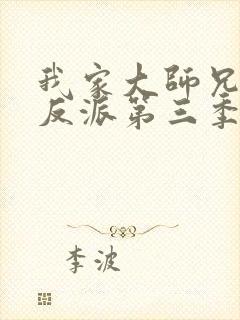 我家大师兄
反派第三季
李波